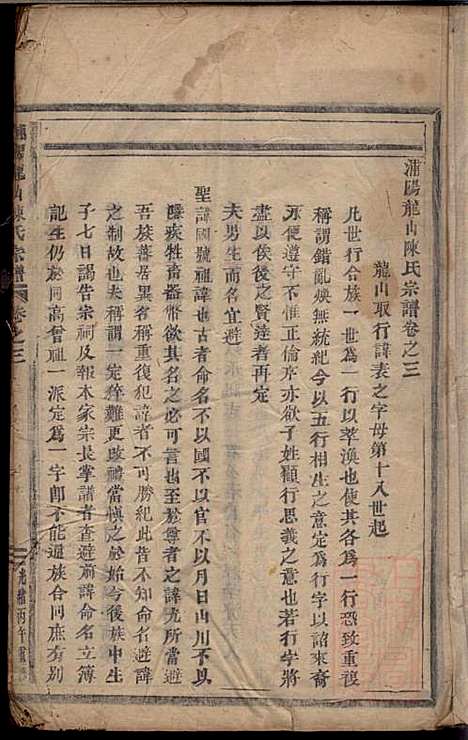 浦陽龍山陳氏宗譜卷之三
龍山取行諱表之字母第十八世起
凡世行合族一世為一行以萃渙也使其各為一行恐致重複
稱謂錯亂煥無統紀今以五行相生之意定為行字以詒來裔
不便遵守不惟正倫序亦欲子姓顧行思義之意也若行字將
盡以俟後之賢達者再定
夫男生而名宜避
聖諱國號祖諱也古者命名不以國不以官不以月日山川不以
隱疾牲畜器幣欲其名之必可言也至於尊者之諱尤所當避
吾族蕃居異省稱重復犯諱者不可勝紀此皆不知命名避諱
之制故也夫稱謂一定猝難更改禮當慎之於始今後族中生
子七日謁告宗祠及報本家宗長掌譜者查避前諱命名立簿
記生仍於同高曾祖一派定為一字即不能通族合同庶有別
浦陽龍山陳氏宗譜 卷之三
光緒丙午重